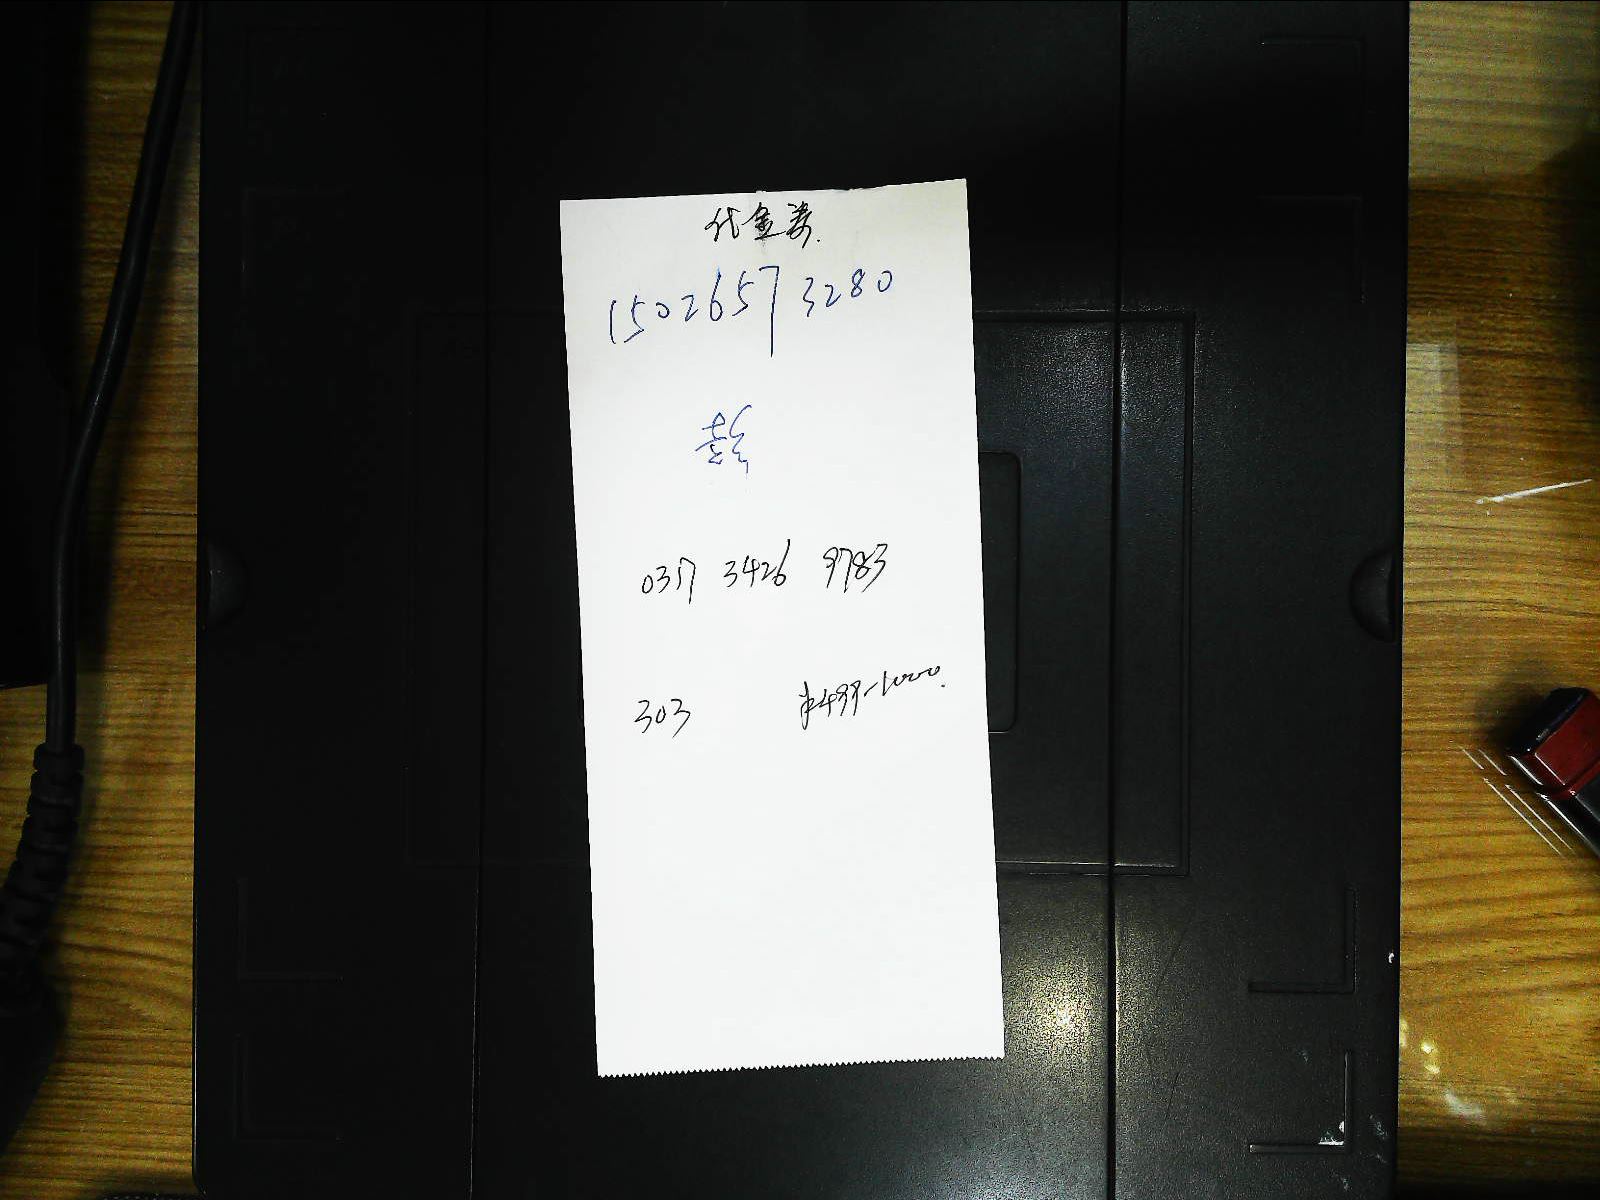 代金券.
15026573280
彭
0357 3426 9783
303 抵499-1000.